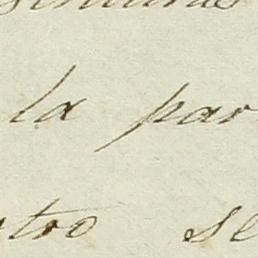 la par
tro se